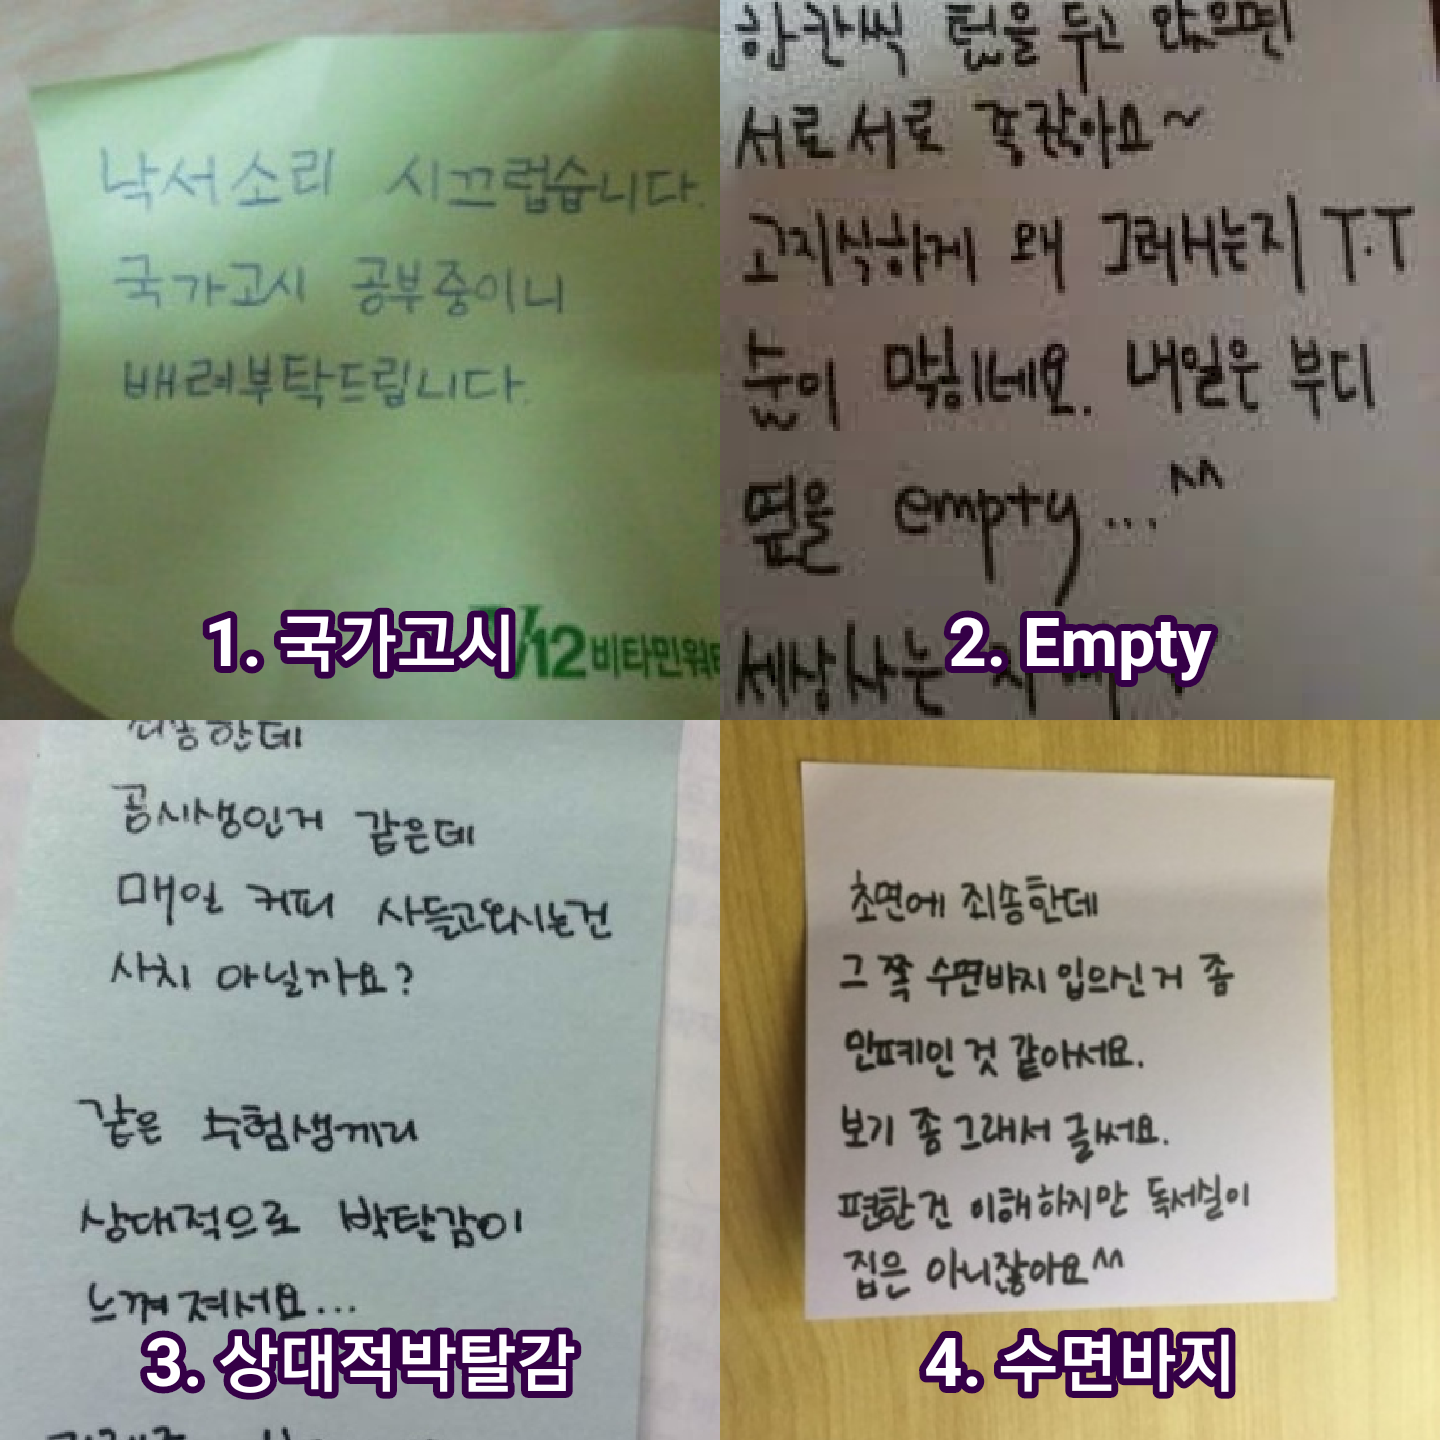 낙서소리 시끄럽습니다.
국가고시 공부중이니
배려부탁드립니다.
V12 비타민워터
1. 국가고시
한칸씩 텀을 두고 앉으면
서로서로 좋잖아요~
고지식하게 왜 그러시는지 T.T
숨이 막히네요. 내일은 부디
옆을 empty...^^
세상사는
2. Empty
죄송한데
공시생인거 같은데
매일 커피 사들고오시는건
사치 아닐까요?
같은 수험생끼리
상대적으로 박탈감이
느껴져서요...
3. 상대적박탈감
초면에 죄송한데
그 쪽 수면바지 입으신거 좀
민폐인 것 같아서요.
보기 좀 그래서 글써요.
편한건 이해하지만 독서실이
집은 아니잖아요^^
4. 수면바지